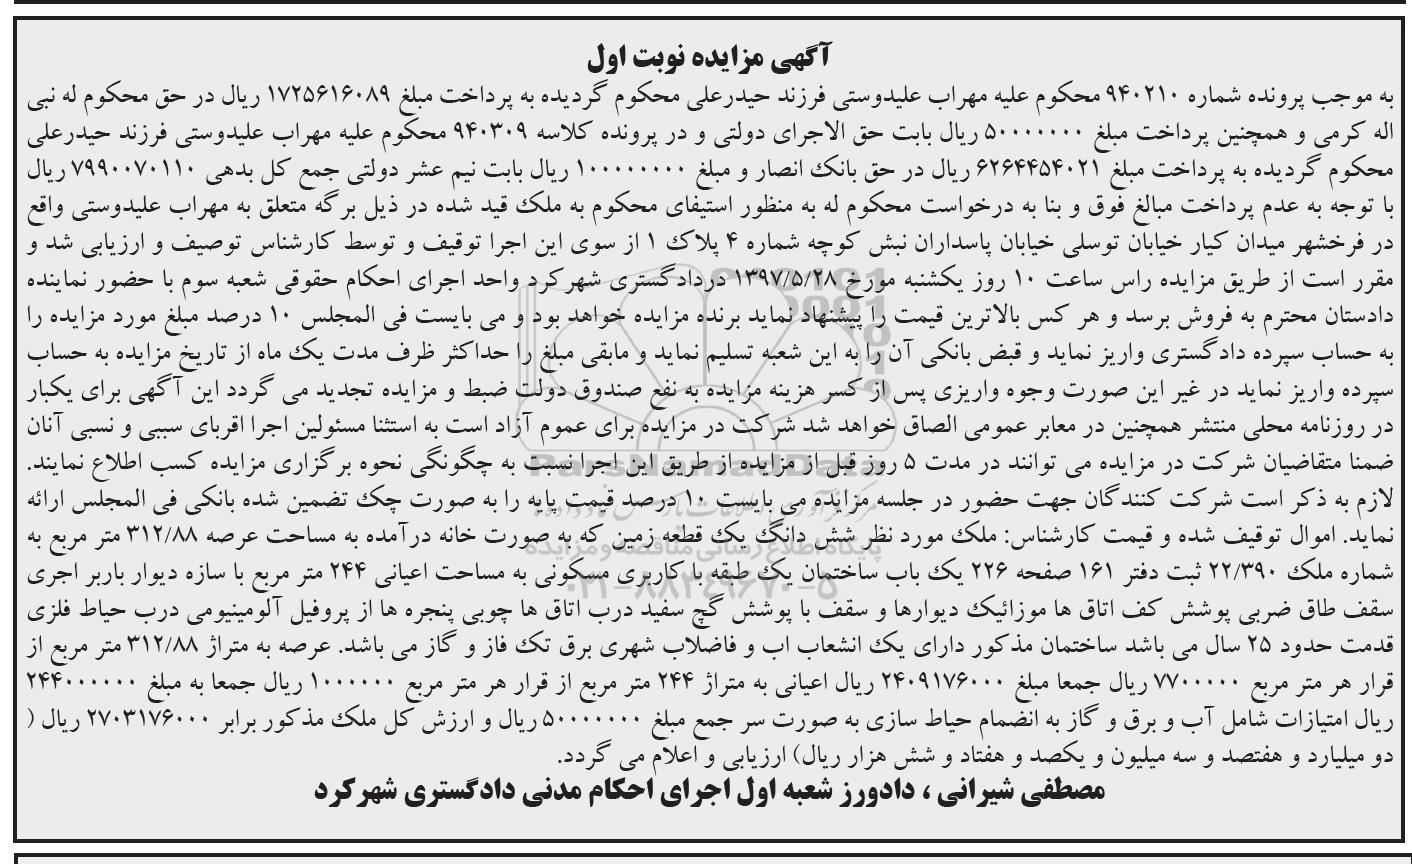 آگهی مزایده نوبت اول
به موجب پرونده شماره ۹۴۰۲۱۰ محکوم علیه مهراب علیدوستی فرزند حیدرعلی محکوم گردیده به پرداخت مبلغ ۱۷۲۵۶۱۶۰۸۹ ریال در حق محکوم له نبی
اله کرمی و همچنین پرداخت مبلغ ۵۰۰۰۰۰۰۰ ریال بابت حق الاجرای دولتی و در پرونده کلاسه ۹۴۰۳۰۹ محکوم علیه مهراب علیدوستی فرزند حیدرعلی
محکوم گردیده به پرداخت مبلغ ۶۲۶۴۴۵۴۰۲۱ ریال در حق بانک انصار و مبلغ ۱۰۰۰۰۰۰۰۰ ریال بابت نیم عشر دولتی جمع کل بدهی ۷۹۹۰۰۷۰۱۱۰ ریال
با توجه به عدم پرداخت مبالغ فوق و بنا به درخواست محکوم له به منظور استیفای محکوم به ملک قید شده در ذیل برگه متعلق به مهراب علیدوستی واقع
در فرخشهر میدان کیار خیابان توسلی خیابان پاسداران نبش کوچه شماره ۴ پلاک ۱ از سوی این اجرا توقیف و توسط کارشناس توصیف و ارزیابی شد و
مقرر است از طریق مزایده راس ساعت ۱۰ روز یکشنبه مورخ ۱۳۹۷/۵/۲۸ دردادگستری شهرکرد واحد اجرای احکام حقوقی شعبه سوم با حضور نماینده
دادستان محترم به فروش برسد و هر کس بالاترین قیمت را پیشنهاد نماید برنده مزایده خواهد بود و می بایست فی المجلس ۱۰ درصد مبلغ مورد مزایده را
به حساب سپرده دادگستری واریز نماید و قبض بانکی آن را به این شعبه تسلیم نماید و مابقی مبلغ را حداکثر ظرف مدت یک ماه از تاریخ مزایده به حساب
سپرده واریز نماید در غیر این صورت وجوه واریزی پس از کسر هزینه مزایده به نفع صندوق دولت ضبط و مزایده تجدید می گردد این آگهی برای یکبار
در روزنامه محلی منتشر همچنین در معابر عمومی الصاق خواهد شد شرکت در مزایده برای عموم آزاد است به استثنا مسئولین اجرا اقربای سببی و نسبی آنان
ضمنا متقاضیان شرکت در مزایده می توانند در مدت ۵ روز قبل از مزایده از طریق این اجرا نسبت به چگونگی نحوه برگزاری مزایده کسب اطلاع نمایند.
لازم به ذکر است شرکت کنندگان جهت حضور در جلسه مزایده می بایست ۱۰ درصد قیمت پایه را به صورت چک تضمین شده بانکی فی المجلس ارائه
نماید. اموال توقیف شده و قیمت کارشناس: ملک مورد نظر شش دانگ یک قطعه زمین که به صورت خانه درآمده به مساحت عرصه ۳۱۲/۸۸ متر مربع به
شماره ملک ۲۲/۳۹۰ ثبت دفتر ۱۶۱ صفحه ۲۲۶ یک باب ساختمان یک طبقه با کاربری مسکونی به مساحت اعیانی ۲۴۴ متر مربع با سازه دیوار باربر اجری
سقف طاق ضربی پوشش کف اتاق ها موزائیک دیوارها و سقف با پوشش گچ سفید درب اتاق ها چوبی پنجره ها از پروفیل آلومینیومی درب حیاط فلزی
قدمت حدود ۲۵ سال می باشد ساختمان مذکور دارای یک انشعاب اب و فاضلاب شهری برق تک فاز و گاز می باشد. عرصه به متراژ ۳۱۲/۸۸ متر مربع از
قرار هر متر مربع ۷۷۰۰۰۰۰ ریال جمعا مبلغ ۲۴۰۹۱۷۶۰۰۰ ریال اعیانی به متراژ ۲۴۴ متر مربع از قرار هر متر مربع ۱۰۰۰۰۰۰ ریال جمعا به مبلغ ۲۴۴۰۰۰۰۰۰
ریال امتیازات شامل آب و برق و گاز به انضمام حیاط سازی به صورت سر جمع مبلغ ۵۰۰۰۰۰۰۰ ریال و ارزش کل ملک مذکور برابر ۲۷۰۳۱۷۶۰۰۰ ریال (
دو میلیارد و هفتصد و سه میلیون و یکصد و هفتاد و شش هزار ریال) ارزیابی و اعلام می گردد.
مصطفی شیرانی ، دادورز شعبه اول اجرای احکام مدنی دادگستری شهرکرد
ParsNamadData
پایگاه اطلاع رسانی مناقصه و مزایده
۰۲۱-۸۸۳۴۹۶۷۰-۵